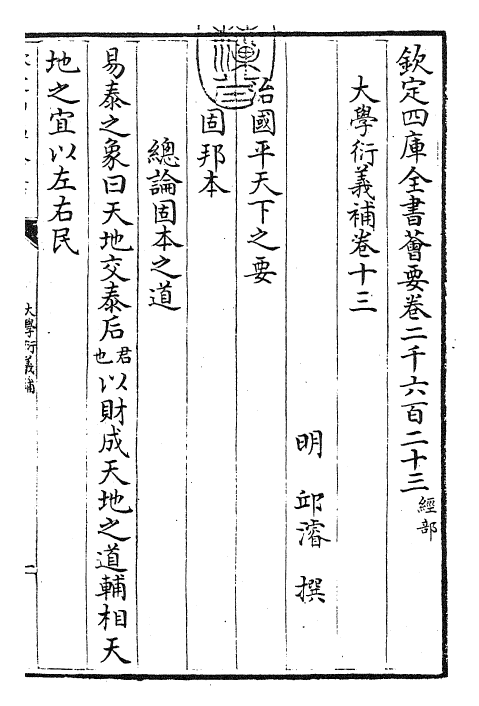 欽定四庫全書薈要卷二千六百二十三 經部
大學衍義補卷十三
明 邱濬 撰
治國平天下之要
固邦本
總論固本之道
易泰之象曰天地交泰后君也以財成天地之道輔相天
地之宜以左右民
大學衍義補